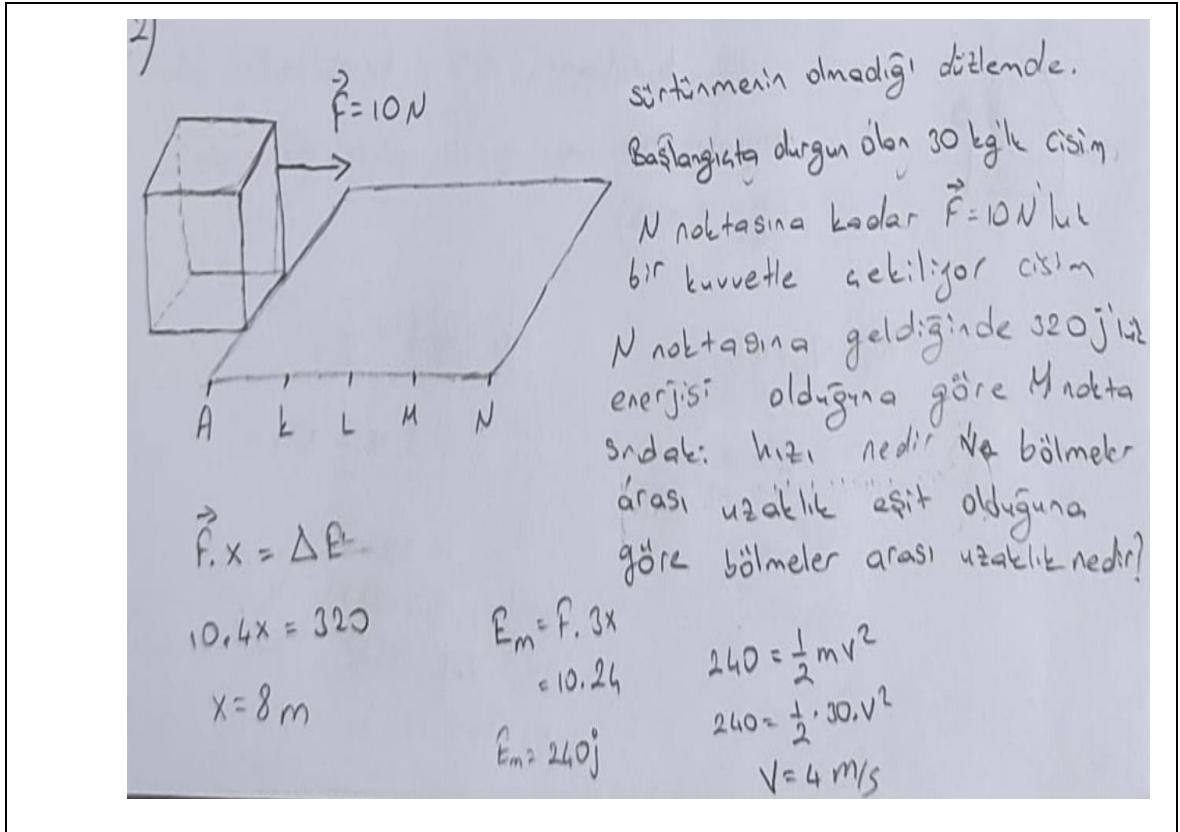 2)
F⃗=10N
sürtünmenin olmadığı düzlemde.
Başlangıçta durgun olan 30 kg'lk cisim
N noktasına kadar F⃗=10N'luk
bir kuvvetle çekiliyor cisim
N noktasına geldiğinde 320 j'luk
enerjisi olduğuna göre M nokta
sındaki hızı nedir Ve bölmeler
arası uzaklık eşit olduğuna
göre bölmeler arası uzaklık nedir?
A K L M N
F⃗.x = ΔE
10.4x = 320
x=8m
Em=F.3x
=10.24
Em=240j
240 = 1/2 mv²
240 = 1/2 . 30.v²
V=4 m/s